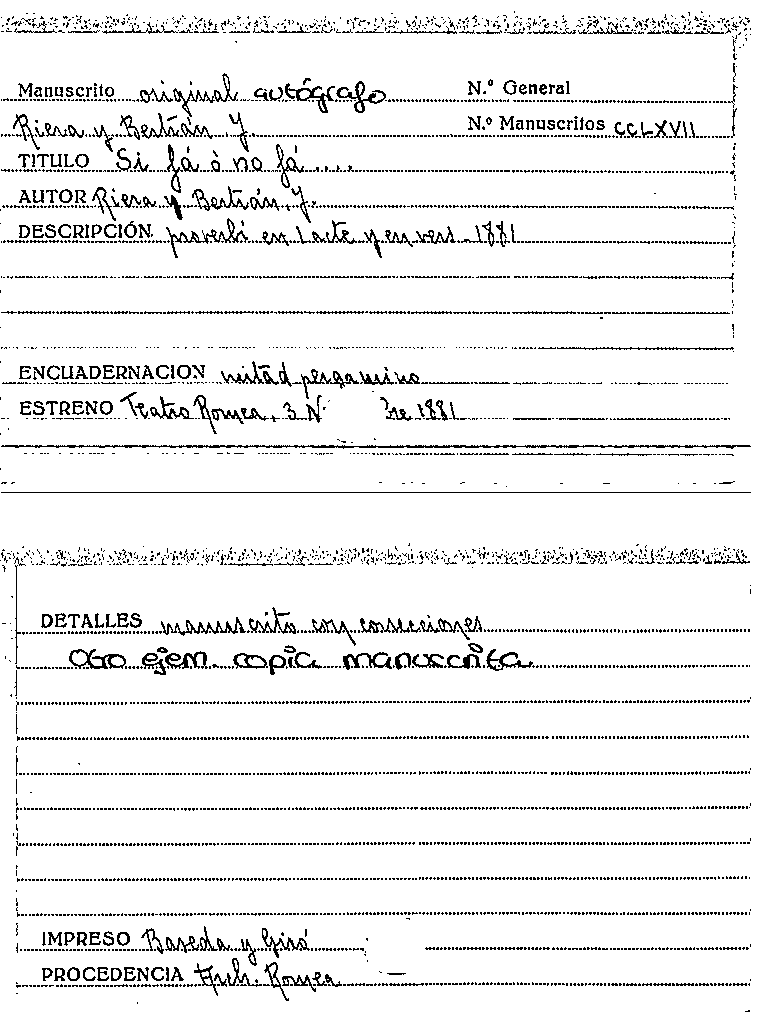 Manuscrito original autógrafo N.º General
Riera y Bertrán, J. N.º Manuscritos CCLXVII
TITULO Si fá ò no fá....
AUTOR Riera y Bertrán, J.
DESCRIPCIÓN proverbi en 1 acte y en vers - 1881
ENCUADERNACION mitad pergamino
ESTRENO Teatro Romea, 3 N bre 1881
DETALLES manuscrito con correcciones
Otro ejem. copia manuscrita
IMPRESO Baseda y Giró
PROCEDENCIA Arch. Romea